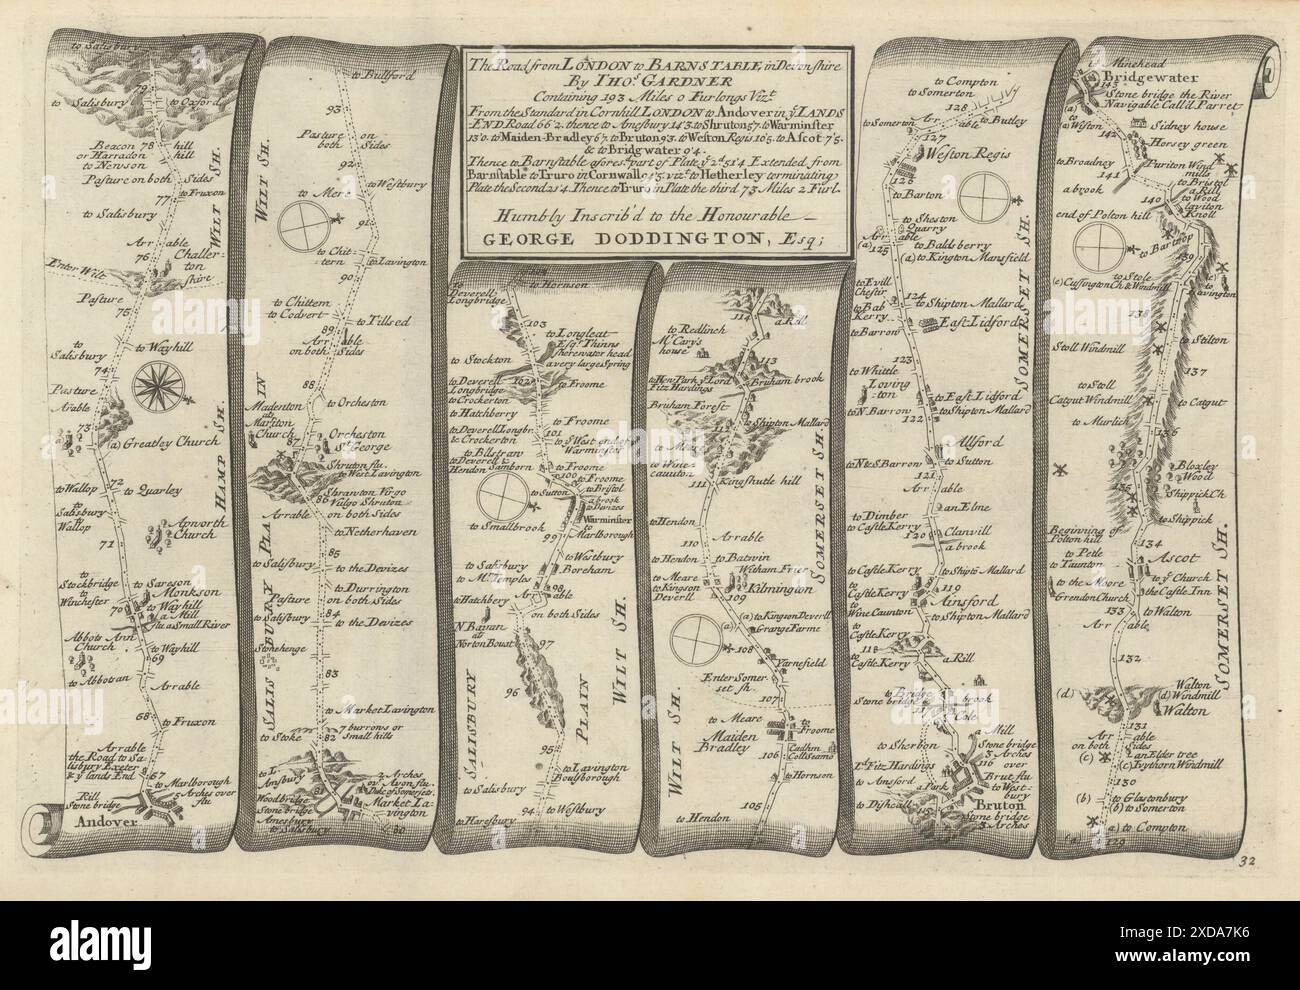 The Road from LONDON to BARNSTABLE, in Devonshire
By THOˢ. GARDNER
Containing 193 Miles 0 Furlongs Vizᵗ
From the Standard in Cornhill LONDON to Andover in yᵉ LANDS
END Road 66'2. thence to Amesbury 14'3. to Shruton 5'7. to Warminster
to Maiden-Bradley 6'7. to Bruton 9'3. to Weston Regis 10'5. to Ascot 7'5.
& to Bridgwater 9'4.
Thence to Barnstable aforesᵈ. part of Plate yᵉ 2ᵈ. 51'4 Extended from
Barnstable to Truro in Cornwall 94'5. vizᵗ to Hetherley terminating
Plate the Second 21'4. Thence to Truro in Plate the third 73 Miles 2 Furl.
Humbly Inscrib'd to the Honourable
GEORGE DODDINGTON, Esq;
to Salisbury
79
to Salisbury
to Oxford
Beacon 78 hill
or Harradon hill
to Newson
Pasture on both Sides
77
to Fruxon
WILT SH.
to Salisbury
Arrable
76
Challer-
ton
Enter Wilt shire
Pasture
75
to Wayhill
to Salisbury
74
Pasture
Arable
73
(a) Greatley Church
HAMP SH.
to Wallop
72
to Quarley
to Salisbury
to Wallop
Apworth
Church
71
to Stockbridge
to Winchester
70
to Sareson
Monkson
to Wayhill
a Mill
a Small River
Abbots Ann
Church
to Wayhill
69
to Abbotsan
Arrable
68
to Fruxon
Arrable
the Road to Sa-
lisbury Exeter
& yᵉ lands End
67
to Marlborough
5 Arches over
Rill
Stone bridge
Andover
to Bullford
93
Pasture on
both Sides
92
WILT SH.
to Westbury
to Mere
91
to Chit-
tern
to Lavington
90
to Chittern
to Codvert
to Tillsed
89
Arrable
on both Sides
88
to Orcheston
Madenton
Marston
Church
87
Orcheston
Sᵗ George
Shruton flu.
to West Lavington
86
Shranton Virgo
Vulgo Shruton
on both Sides
Arrable
to Netherhaven
SALISBURY PLAIN
85
to Salisbury
to the Devizes
to Durrington
Pasture on both Sides
84
to Salisbury
to the Devizes
Stonehenge
83
to Market Lavington
7 burrows or
Small hills
to Stoke
82
2 Arches
or Avon flu
Duke of Somersets
Woodbridge
81
Stone bridge
Amesbury
to Salisbury
Market La-
vington
80
to Hornson
to Deverell
Longbridge
103
to Longleat
Esqʳ Thinns
Sheerwater head
a very large Spring
to Stockton
to Deverell
Longbridge
to Crockerton
102
to Froome
to Hatchberry
to Froome
101
to yᵉ West end of
Warminster
to Deverell Longbr.
& Crockerton
to Bllstraw
to Deverell
Hendon
Samborn
to Froome
100
to Froome
to Bristol
a brook
to Devizes
to Sutton
to Smallbrook
Warminster
to
Marlborough
99
to Westbury
Boreham
to Salisbury
to Mʳ Temples
98
Arrable
on both Sides
to Hatchbery
N Bavan
at
Norton Boust
97
96
WILT SH.
SALISBURY PLAIN
95
to Lavington
Boulsborough
to Salisbury
94
to Westbury
to Haresbury
114
a Rill
to Redlinch
Mʳ Cary's
house
113
Bruham brook
to Hon: Park yᵉ Lord
Fitz Hardings
Bruham Forest
112
to Shipton Mallard
to Meare
to Winca-
cauiton
Kingshutle hill
111
to Hendon
Arrable
110
to Hendon
to Batwin
SOMERSET SH.
to Meare
to Kingson
Deverll
Witham Frier
Kilmington
109
(a) to Kingson Deverll
Grange Farme
108
Yarnefield
Enter Somer-
set sh.
107
WILT SH.
to Meare
Maiden
Bradley
to
Froome
106
Cadhm
Collseamo
to Hornson
105
to Hendon
to Compton
to Somerton
128
to Somerton
Arrable
to Butley
127
Weston Regis
126
to Barton
to Sheston
Quarry
Arrable
(a)
125
to Baldsberry
(a) to Kington Mansfield
to Evill
Chestir
124
to Shipton Mallard
to Bab
Kerry
to Barrow
East Lidford
SOMERSET SH.
123
to Whittle
Loving-
ton
to East Lidford
to N. Barrow
to Shipton Mallard
122
Allford
to Sutton
to N & S. Barrow
121
Arrable
an Elne
to Dimber
to Castle Kerry
120
Clanvill
a brook
to Castle Kerry
to Shiptō Mallard
119
Ainsford
to Castle Kerry
to Wine Caunton
to Shipton Mallard
to Castle Kerry
118
to Castle Kerry
a Rill
to Bridge
Stone bridge
a brook
117
Cole
to Sherbon
a Mill
Stone bridge
3 Arches
116 over
Brut flu
to West-
bury
Lᵈ Fitz Hardings
to Ansford
a Park
Bruton
to Disheall
115
Stone bridge
3 Arches
to Minehead
Bridgewater
143
(a)
Stone bridge the River
Navigable Call'd Parret
(a)
to Wiston
142
Sidney house
Horsey green
to Broadney
141
Puriton Wind
mills
to Bristol
a Rill
to Wood
laviton
Knoll
a brook
140
end of Polton hill
to Bartrop
139
to Stole
(e) Cussington Ch & Windmill
(e)
to
Lavington
138
to Stilton
Stoll Windmill
137
to Stoll
Catgut Windmill
to Catgut
to Murlich
136
Bloxley
Wood
135
Shippick Ch.
Beginning of
Polton hill
to Shippick
134
to Petle
to Taunton
Ascot
to the Moore
Grendon Church
to yᵉ Church
the Castle Inn
133
to Walton
Arrable
132
SOMERSET SH.
(d)
Walton
(d) Windmill
Walton
131
Arrable
on both Sides
(c)
an Elder tree
(c) Ivythorn Windmill
130
(b)
to Glastonbury
(b) to Somerton
(a)
(a) to Compton
129
32
alamy
Image ID: 2XDA7K6
www.alamy.com